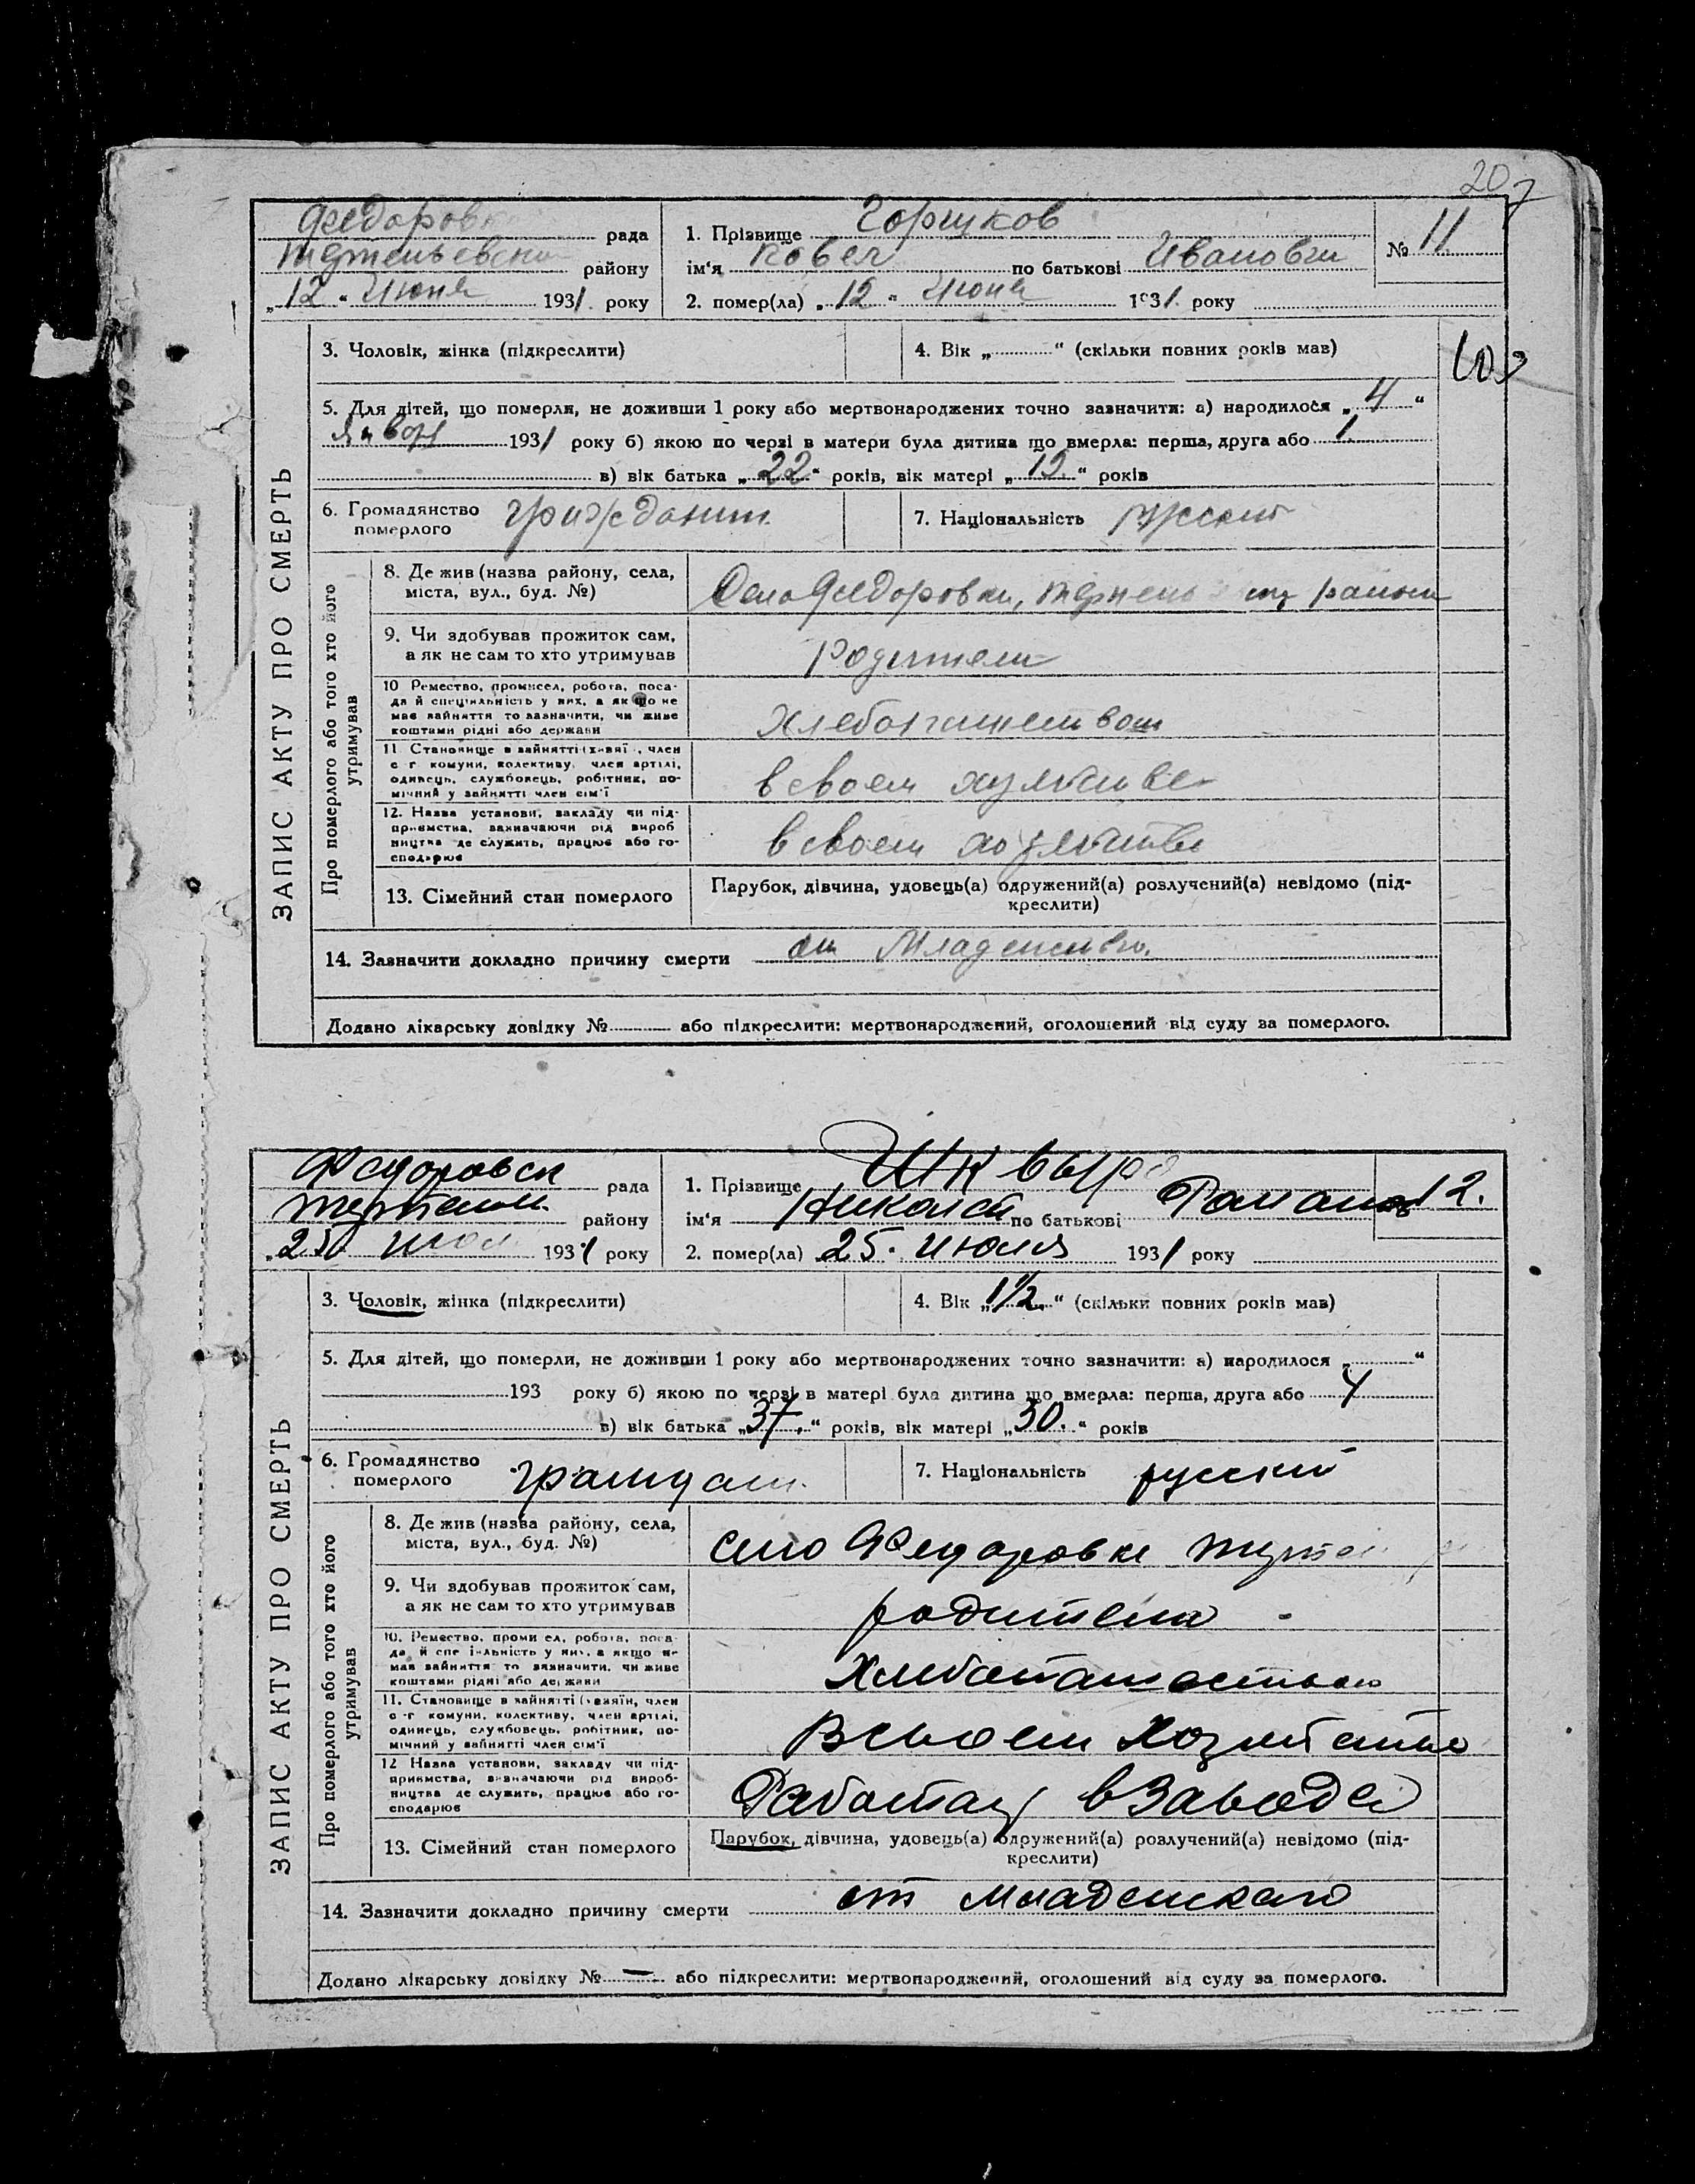 20
Федоров рада
району
„12“ Июня 1931 року
1. Прізвище Горшков
ім'я Павел по батькові Ивановги
2. помер(ла) „12“ Июня 1931 року
№ 11
ЗАПИС АКТУ ПРО СМЕРТЬ
3. Чоловік, жінка (підкреслити)
4. Вік „ “ (скільки повних років мав)
5. Для дітей, що померли, не доживши 1 року або мертвонароджених точно зазначити: а) народилося „4“
Январ 1931 року б) якою по черзі в матери була дитина що вмерла: перша, друга або 1
в) вік батька „22“ років, вік матері „19“ років
6. Громадянство
померлого гражданин
7. Національність русский
Про померлого або того хто його
утримував
8. Де жив (назва району, села,
міста, вул., буд. №)
Село Федоровки, района
9. Чи здобував прожиток сам,
а як не сам то хто утримував
Родители
10 Ремество, промисел, робота, поса-
да й спеціяльність у них, а якщо не
має зайняття то зазначити, чи живе
коштами рідні або держави
11 Становище в зайнятті (хазяї , член
с г комуни, колективу, член артілі,
одинець, службовець, робітник, по-
мічний у зайнятті член сім'ї
в своем хозяйстве
12. Назва установи, закладу чи під-
приємства, зазначаючи рід вироб
ництва де служить, працює або го-
сподарює
в своем хозяйстве
13. Сімейний стан померлого
Парубок, дівчина, удовець(а) одружений(а) розлучений(а) невідомо (під-
креслити)
14. Зазначити докладно причину смерти от Младенства.
Додано лікарську довідку № або підкреслити: мертвонароджений, оголошений від суду за померлого.
Федоровск рада
району
„25 июля 1931 року
1. Прізвище Шквыра
ім'я Николай по батькові Роман
2. помер(ла) 25. июля 1931 року
12.
ЗАПИС АКТУ ПРО СМЕРТЬ
3. Чоловік, жінка (підкреслити)
4. Вік „1 1/2“ (скільки повних років мав)
5. Для дітей, що померли, не доживши 1 року або мертвонароджених точно зазначити: а) народилося „ “
193 року б) якою по черзі в матері була дитина що вмерла: перша, друга або 4
в) вік батька „37.“ років, вік матері „30.“ років
6. Громадянство
померлого граждан.
7. Національність русский
Про померлого або того хто його
утримував
8. Де жив (назва району, села,
міста, вул., буд. №)
село Федоровке
9. Чи здобував прожиток сам,
а як не сам то хто утримував
родители
10. Ремество, проми ел, робота, поса-
да й спе і-льність у них, а якщо не
має зайняття то зазначити, чи живе
коштами рідні або держави
11. Становище в зайнятті (хазяїн, член
с-г комуни, колективу, член артілі,
одинець, службовець, робітник, по-
мічний у зайнятті член сім'ї
В своем Хозяйстве
12 Назва установи, закладу чи під-
приємства, визначаючи рід вироб-
ництва де служить, працює або го-
сподарює
Работал в Заводе
13. Сімейний стан померлого
Парубок, дівчина, удовець(а) одружений(а) розлучений(а) невідомо (під-
креслити)
14. Зазначити докладно причину смерти от младенского
Додано лікарську довідку № — або підкреслити: мертвонароджений, оголошений від суду за померлого.